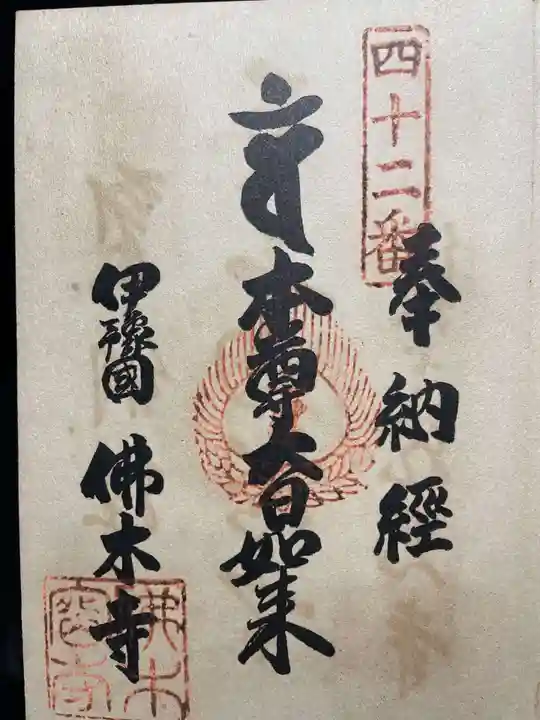 四十二番
奉納經
本尊大日如来
伊豫國 佛木寺